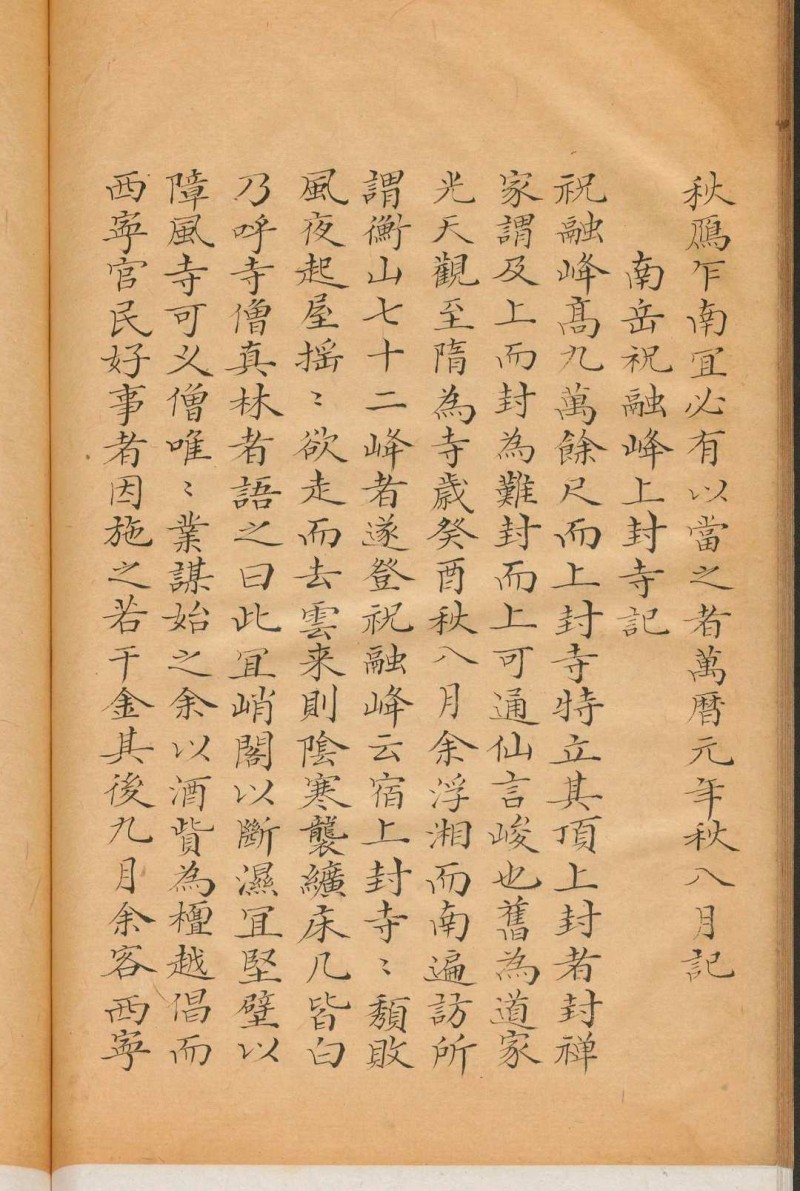 秋鴈乍南冝必有以當之者萬曆元年秋八月記
南岳祝融峰上封寺記
祝融峰髙九萬餘尺而上封寺特立其頂上封者封禅
家謂及上而封為難封而上可通仙言峻也舊為道家
光天觀至隋為寺歲癸酉秋八月余浮湘而南遍訪所
謂衡山七十二峰者遂登祝融峰云宿上封寺〻頽敗
風夜起屋揺〻欲走而去雲来則陰寒襲纊床几皆白
乃呼寺僧真林者語之曰此冝峭閣以斷濕冝堅壁以
障風寺可乂僧唯〻業謀始之余以酒貲為檀越倡而
西寧官民好事者因施之若干金其後九月余客西寧